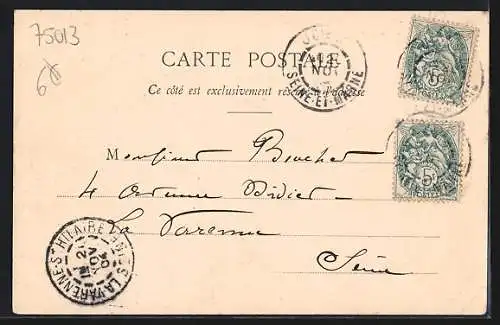 75013
6
CARTE POSTALE
Ce côté est exclusivement réservé à l'adresse
SEINE-ET-MARNE
5c
5c
Monsieur Bouchet
4 Avenue Didier
La Varenne
Seine
LA VARENNE-ST-HILAIRE